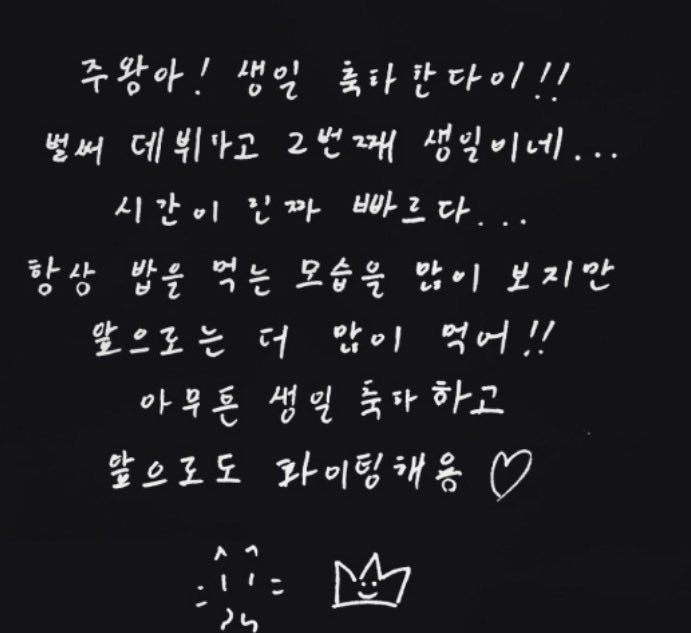 주왕아! 생일 축하한다이!!
벌써 데뷔하고 2번째 생일이네...
시간이 진짜 빠르다...
항상 밥을 먹는 모습을 많이 보지만
앞으로는 더 많이 먹어!!
아무튼 생일 축하하고
앞으로도 화이팅해용 ♡